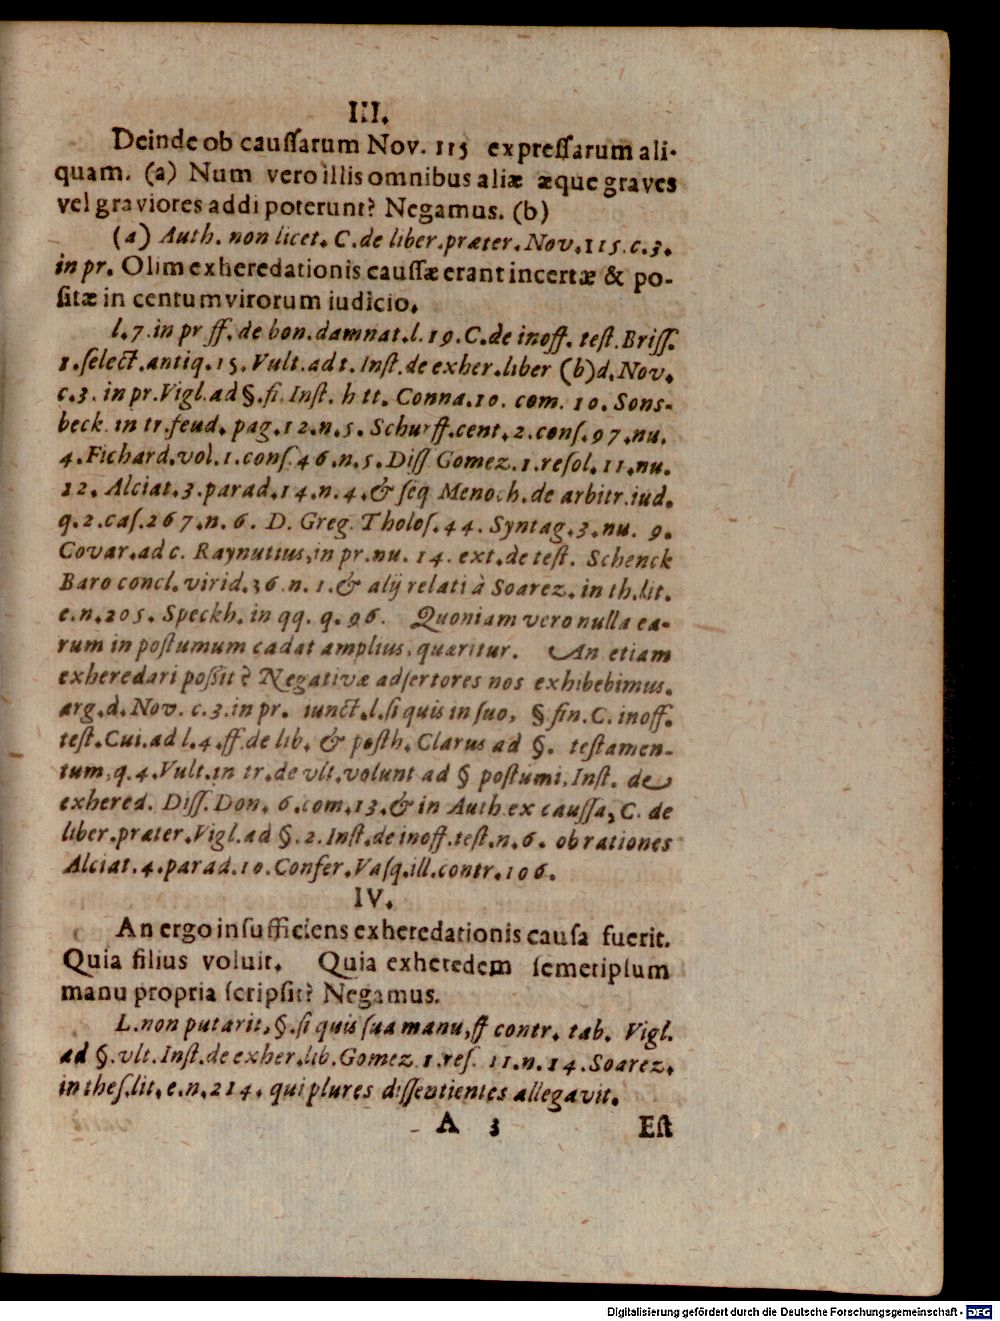 III.
Deinde ob cauſſarum Nov. 115 expreſſarum ali-
quam. (a) Num vero illis omnibus aliæ æque graves
vel graviores addi poterunt? Negamus. (b)
(a) Auth. non licet. C. de liber. præter. Nov. 115. c. 3.
in pr. Olim exheredationis cauſſæ erant incertæ & po-
ſitæ in centumvirorum iudicio.
l. 7. in pr ff. de bon. damnat. l. 19. C. de inoff. teſt. Briſſ.
1. ſelect. antiq. 15. Vult. ad t. Inſt. de exher. liber (b) d. Nov.
c. 3. in pr. Vigl. ad §. fi. Inſt. h tt. Conna. 10. com. 10. Sons-
beck. in tr. feud. pag. 12. n. 5. Schurff. cent. 2. conſ. 97. nu.
4. Fichard. vol. 1. conſ. 46. n. 5. Diſſ Gomez. 1. reſol. 11. nu.
12. Alciat. 3. parad. 14. n. 4. & ſeq Menoch. de arbitr. iud.
q. 2. caſ. 267. n. 6. D. Greg. Tholoſ. 44. Syntag. 3. nu. 9.
Covar. ad c. Raynutius, in pr. nu. 14. ext. de teſt. Schenck
Baro concl. virid. 36. n. 1. & alij relati à Soarez. in th. lit.
e. n. 205. Speckh. in qq. q. 96. Quoniam vero nulla ea-
rum in poſtumum cadat amplius, quæritur. An etiam
exheredari poſſit? Negativæ adſertores nos exhibebimus.
arg. d. Nov. c. 3. in pr. iunct. l. ſi quis in ſuo, § fin. C. inoff.
teſt. Cui. ad l. 4. ff. de lib. & poſth. Clarus ad §. teſtamen-
tum, q. 4. Vult. in tr. de vlt. volunt ad § poſtumi, Inſt. de
exhered. Diſſ. Don. 6. com. 13. & in Auth ex cauſſa, C. de
liber. præter. Vigl. ad §. 2. Inſt. de inoff. teſt. n. 6. ob rationes
Alciat. 4. parad. 10. Confer. Vaſq. ill. contr. 106.
IV.
An ergo inſufficiens exheredationis cauſa fuerit.
Quia filius voluit. Quia exheredem ſemetipſum
manu propria ſcripſit? Negamus.
L. non putarit, §. ſi quis ſua manu, ff contr. tab. Vigl.
ad §. vlt. Inſt. de exher. lib. Gomez 1. reſ. 11. n. 14. Soarez.
in theſ. lit. e. n. 214. qui plures diſſentientes allegavit.
A 3 Eſt
Digitalisierung gefördert durch die Deutsche Forschungsgemeinschaft - DFG